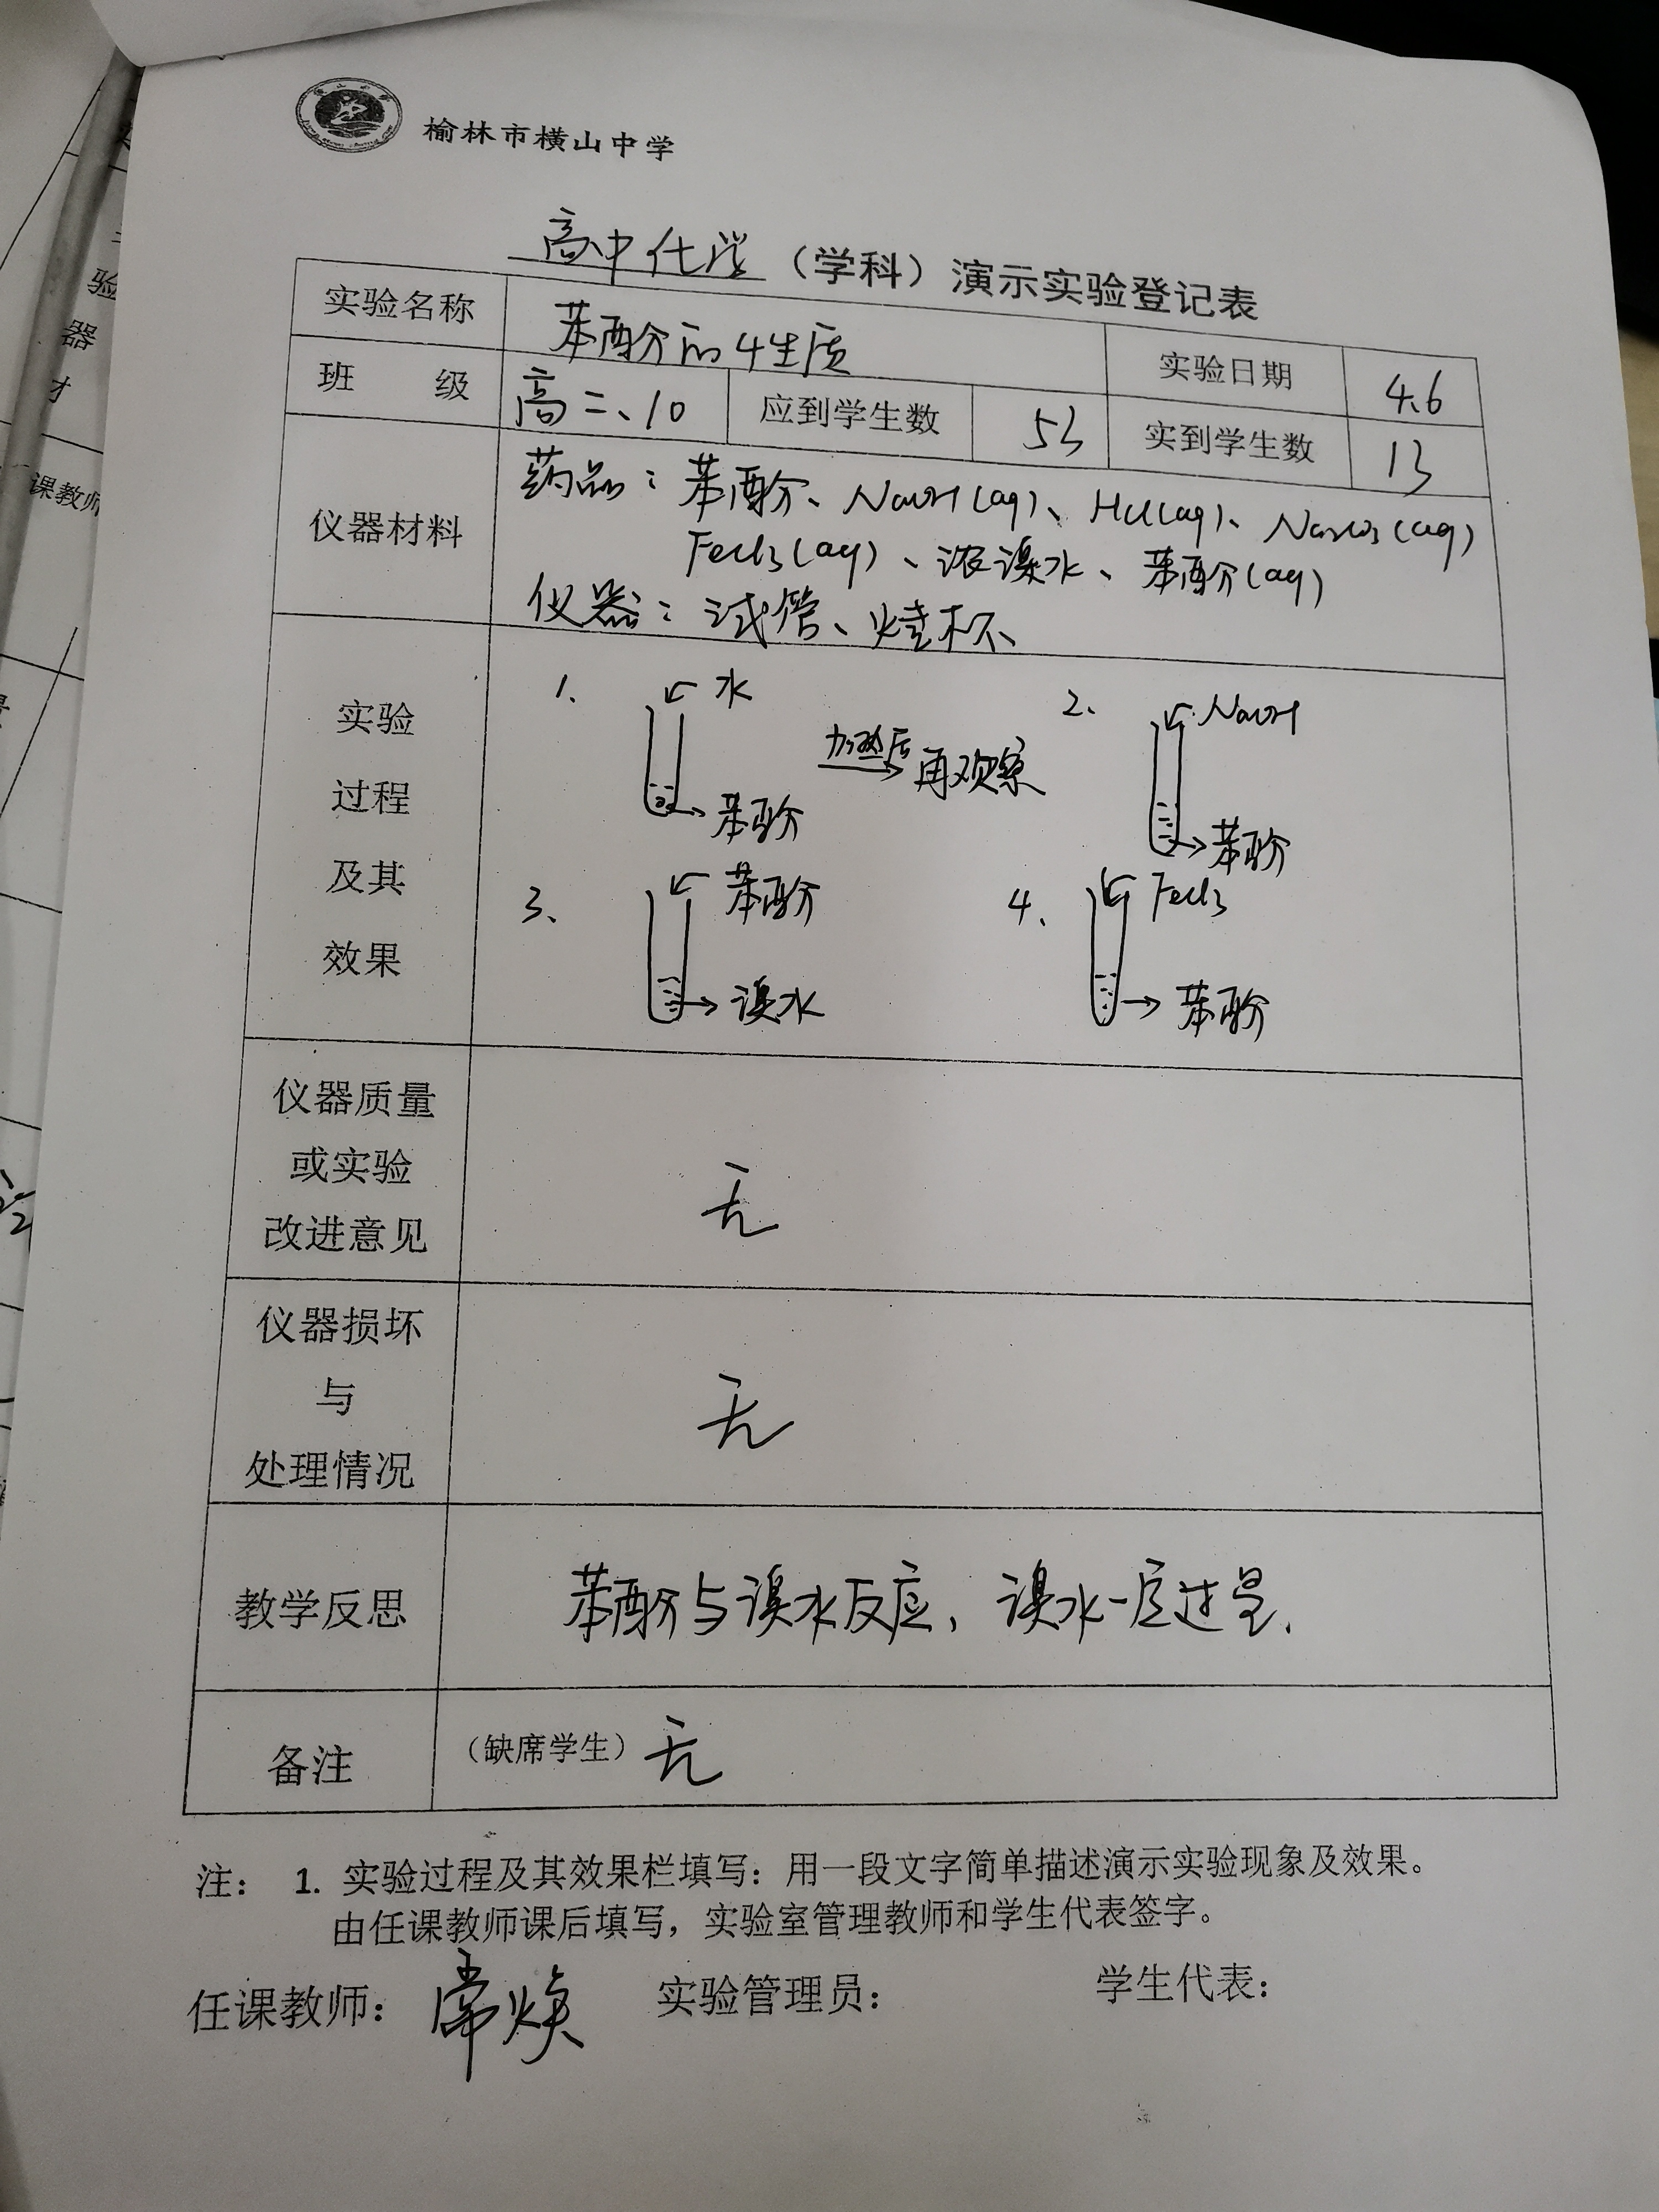 榆林市横山中学
高中化学（学科）演示实验登记表
实验名称 苯酚的性质 实验日期 4.6
班 级 高二、10 应到学生数 53 实到学生数 13
仪器材料
药品：苯酚、NaOH(aq)、HCl(aq)、Na2CO3(aq)
FeCl3(aq)、浓溴水、苯酚(aq)
仪器：试管、烧杯、
实验
过程
及其
效果
1、 水
苯酚
加热后
再观察
2、 NaOH
苯酚
3、 苯酚
溴水
4、 FeCl3
苯酚
仪器质量
或实验
改进意见
无
仪器损坏
与
处理情况
无
教学反思
苯酚与溴水反应，溴水一定过量.
备注 （缺席学生）无
注： 1. 实验过程及其效果栏填写：用一段文字简单描述演示实验现象及效果。
由任课教师课后填写，实验室管理教师和学生代表签字。
任课教师：常焕 实验管理员： 学生代表：
验
器
才
课教师